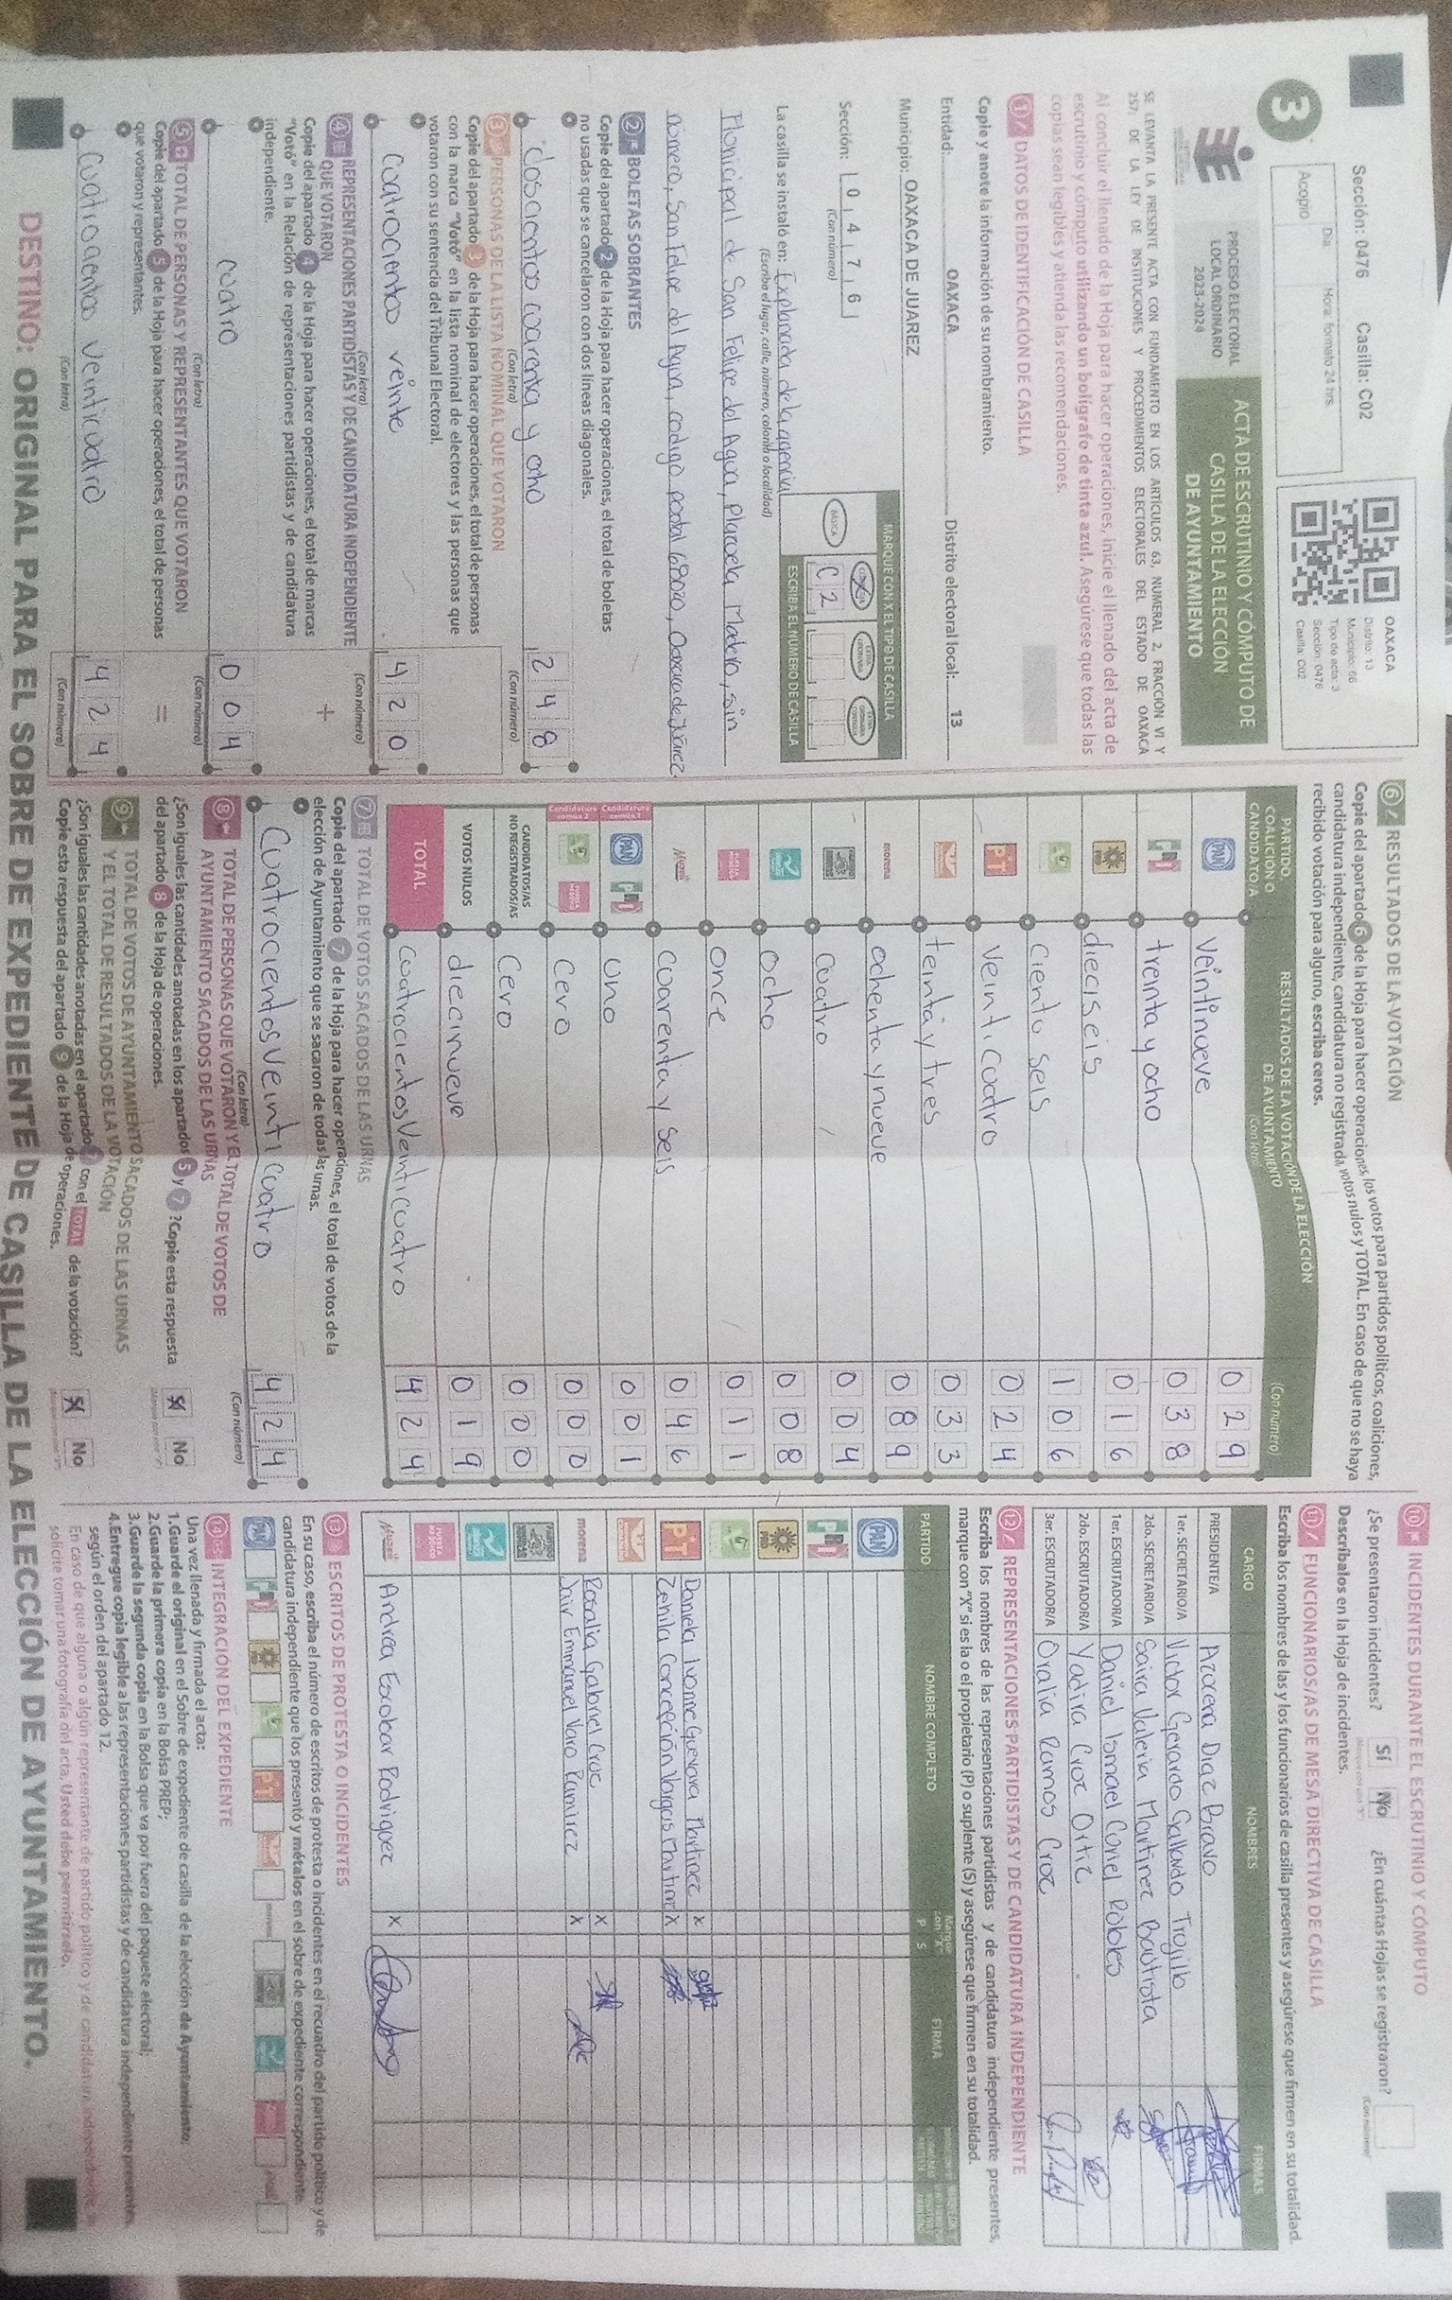 Sección: 0476 Casilla: C02
Día: Hora: formato 24 hrs.
Acopio
OAXACA
Distrito: 13
Municipio: 66
Tipo de acta: 3
Sección: 0476
Casilla: C02
3
PROCESO ELECTORAL
LOCAL ORDINARIO
2023-2024
ACTA DE ESCRUTINIO Y CÓMPUTO DE
CASILLA DE LA ELECCIÓN
DE AYUNTAMIENTO
SE LEVANTA LA PRESENTE ACTA CON FUNDAMENTO EN LOS ARTÍCULOS 63, NUMERAL 2, FRACCIÓN VI Y
257; DE LA LEY DE INSTITUCIONES Y PROCEDIMIENTOS ELECTORALES DEL ESTADO DE OAXACA
Al concluir el llenado de la Hoja para hacer operaciones, inicie el llenado del acta de
escrutinio y cómputo utilizando un bolígrafo de tinta azul. Asegúrese que todas las
copias sean legibles y atienda las recomendaciones.
1 DATOS DE IDENTIFICACIÓN DE CASILLA
Copie y anote la información de su nombramiento.
Entidad: OAXACA Distrito electoral local: 13
Municipio: OAXACA DE JUAREZ
Sección: 0 4 7 6
(Con número)
MARQUE CON X EL TIPO DE CASILLA
BÁSICA
C 2
ESCRIBA EL NÚMERO DE CASILLA
La casilla se instaló en: Explanada de la agencia
(Escriba el lugar, calle, número, colonia o localidad)
Municipal de San Felipe del Agua, Plazuela Madero, sin
numero, San Felipe del Agua, codigo postal 68020, Oaxaca de Juárez.
2 BOLETAS SOBRANTES
Copie del apartado 2 de la Hoja para hacer operaciones, el total de boletas
no usadas que se cancelaron con dos líneas diagonales.
doscientos coarenta y ocho 2 4 8
(Con letra) (Con número)
3 PERSONAS DE LA LISTA NOMINAL QUE VOTARON
Copie del apartado 3 de la Hoja para hacer operaciones, el total de personas
con la marca "Votó" en la lista nominal de electores y las personas que
votaron con su sentencia del Tribunal Electoral.
Coatrociento veinte 4 2 0
(Con letra) (Con número)
4 REPRESENTACIONES PARTIDISTAS Y DE CANDIDATURA INDEPENDIENTE
QUE VOTARON +
Copie del apartado 4 de la Hoja para hacer operaciones, el total de marcas
"Votó" en la Relación de representaciones partidistas y de candidatura
independiente.
cuatro 0 0 4
(Con letra) (Con número)
5 TOTAL DE PERSONAS Y REPRESENTANTES QUE VOTARON
Copie del apartado 5 de la Hoja para hacer operaciones, el total de personas =
que votaron y representantes.
Cuatrociento veinticuatro 4 2 4
(Con letra) (Con número)
6 RESULTADOS DE LA VOTACIÓN
Copie del apartado 6 de la Hoja para hacer operaciones los votos para partidos políticos, coaliciones,
candidatura independiente, candidatura no registrada, votos nulos y TOTAL. En caso de que no se haya
recibido votación para alguno, escriba ceros.
PARTIDO, COALICIÓN O CANDIDATO/A RESULTADOS DE LA VOTACIÓN DE LA ELECCIÓN DE AYUNTAMIENTO (Con letra) (Con número)
PAN veintinueve 0 2 9
PRI treinta y ocho 0 3 8
PRD dieciseis 0 1 6
Ciento seis 1 0 6
PT veinticuatro 0 2 4
teinta y tres 0 3 3
morena ochenta y nueve 0 8 9
cuatro 0 0 4
ocho 0 0 8
once 0 1 1
Coarenta y seis 0 4 6
PAN PRI Uno 0 0 1
Cero 0 0 0
CANDIDATOS/AS NO REGISTRADOS/AS Cero 0 0 0
VOTOS NULOS diecinueve 0 1 9
TOTAL CoatrocientosVeinticuatro 4 2 4
7 TOTAL DE VOTOS SACADOS DE LAS URNAS
Copie del apartado 7 de la Hoja para hacer operaciones, el total de votos de la
elección de Ayuntamiento que se sacaron de todas las urnas.
CuatrocientosVeinticuatro 4 2 4
(Con letra) (Con número)
8 TOTAL DE PERSONAS QUE VOTARON Y EL TOTAL DE VOTOS DE
AYUNTAMIENTO SACADOS DE LAS URNAS
¿Son iguales las cantidades anotadas en los apartados 5 y 7 ? Copie esta respuesta
del apartado 8 de la Hoja de operaciones. Sí No
9 TOTAL DE VOTOS DE AYUNTAMIENTO SACADOS DE LAS URNAS
Y EL TOTAL DE RESULTADOS DE LA VOTACIÓN
¿Son iguales las cantidades anotadas en el apartado 7 con el TOTAL de la votación?
Copie esta respuesta del apartado 9 de la Hoja de operaciones. Sí No
10 INCIDENTES DURANTE EL ESCRUTINIO Y CÓMPUTO
¿Se presentaron incidentes? Sí No ¿En cuántas Hojas se registraron?
Descríbalos en la Hoja de incidentes.
11 FUNCIONARIOS/AS DE MESA DIRECTIVA DE CASILLA
Escriba los nombres de las y los funcionarios de casilla presentes y asegúrese que firmen en su totalidad.
CARGO NOMBRES FIRMAS
PRESIDENTE/A Azucena Diaz Bravo
1er. SECRETARIO/A Victor Gerardo Gallardo Trujillo
2do. SECRETARIO/A Saira Valeria Martinez Bautista
1er. ESCRUTADOR/A Daniel Ismael Conel Robles
2do. ESCRUTADOR/A Yadira Cruz Ortiz
3er. ESCRUTADOR/A Oralia Ramos Cruz
12 REPRESENTACIONES PARTIDISTAS Y DE CANDIDATURA INDEPENDIENTE
Escriba los nombres de las representaciones partidistas y de candidatura independiente presentes,
marque con "X" si es la o el propietario (P) o suplente (S) y asegúrese que firmen en su totalidad.
PARTIDO NOMBRE COMPLETO P S FIRMA
PAN
PRI
PRD
Daniela Ivonne Guevara Martinez X
PT Zenila Concepción Vargas Martinez X
Rosalia Gabriel Cruz X
morena Jair Emmanuel Varo Ramirez X
Andrea Escobar Rodriguez X
13 ESCRITOS DE PROTESTA O INCIDENTES
En su caso, escriba el número de escritos de protesta o incidentes en el recuadro del partido político y de
candidatura independiente que los presentó y métalos en el sobre de expediente correspondiente.
14 INTEGRACIÓN DEL EXPEDIENTE
Una vez llenada y firmada el acta:
1.Guarde el original en el Sobre de expediente de casilla de la elección de Ayuntamiento;
2.Guarde la primera copia en la Bolsa PREP;
3.Guarde la segunda copia en la Bolsa que va por fuera del paquete electoral;
4.Entregue copia legible a las representaciones partidistas y de candidatura independiente presentes,
según el orden del apartado 12.
En caso de que alguna o algún representante de partido político y de candidatura independiente
solicite tomar una fotografía del acta, Usted debe permitírselo.
DESTINO: ORIGINAL PARA EL SOBRE DE EXPEDIENTE DE CASILLA DE LA ELECCIÓN DE AYUNTAMIENTO.